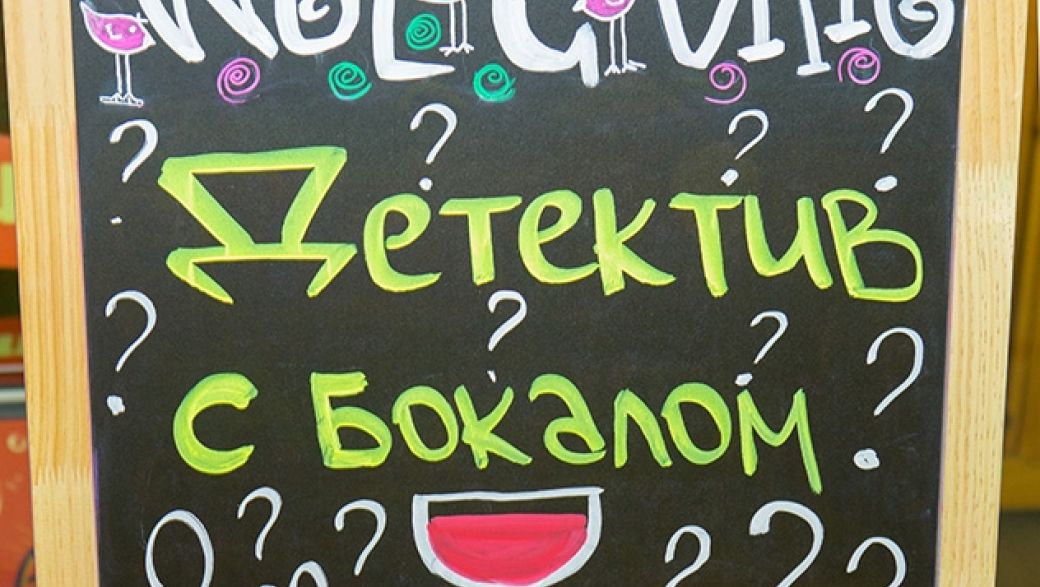 Детектив
с Бокалом
? ? ? ?
? ? ? ?
? ? ? ? ? ? ?